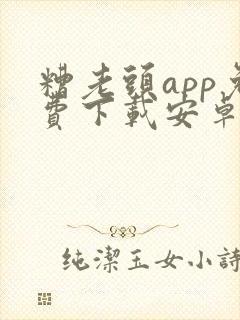 糟老頭app免
費下載安卓
純潔玉女小詩